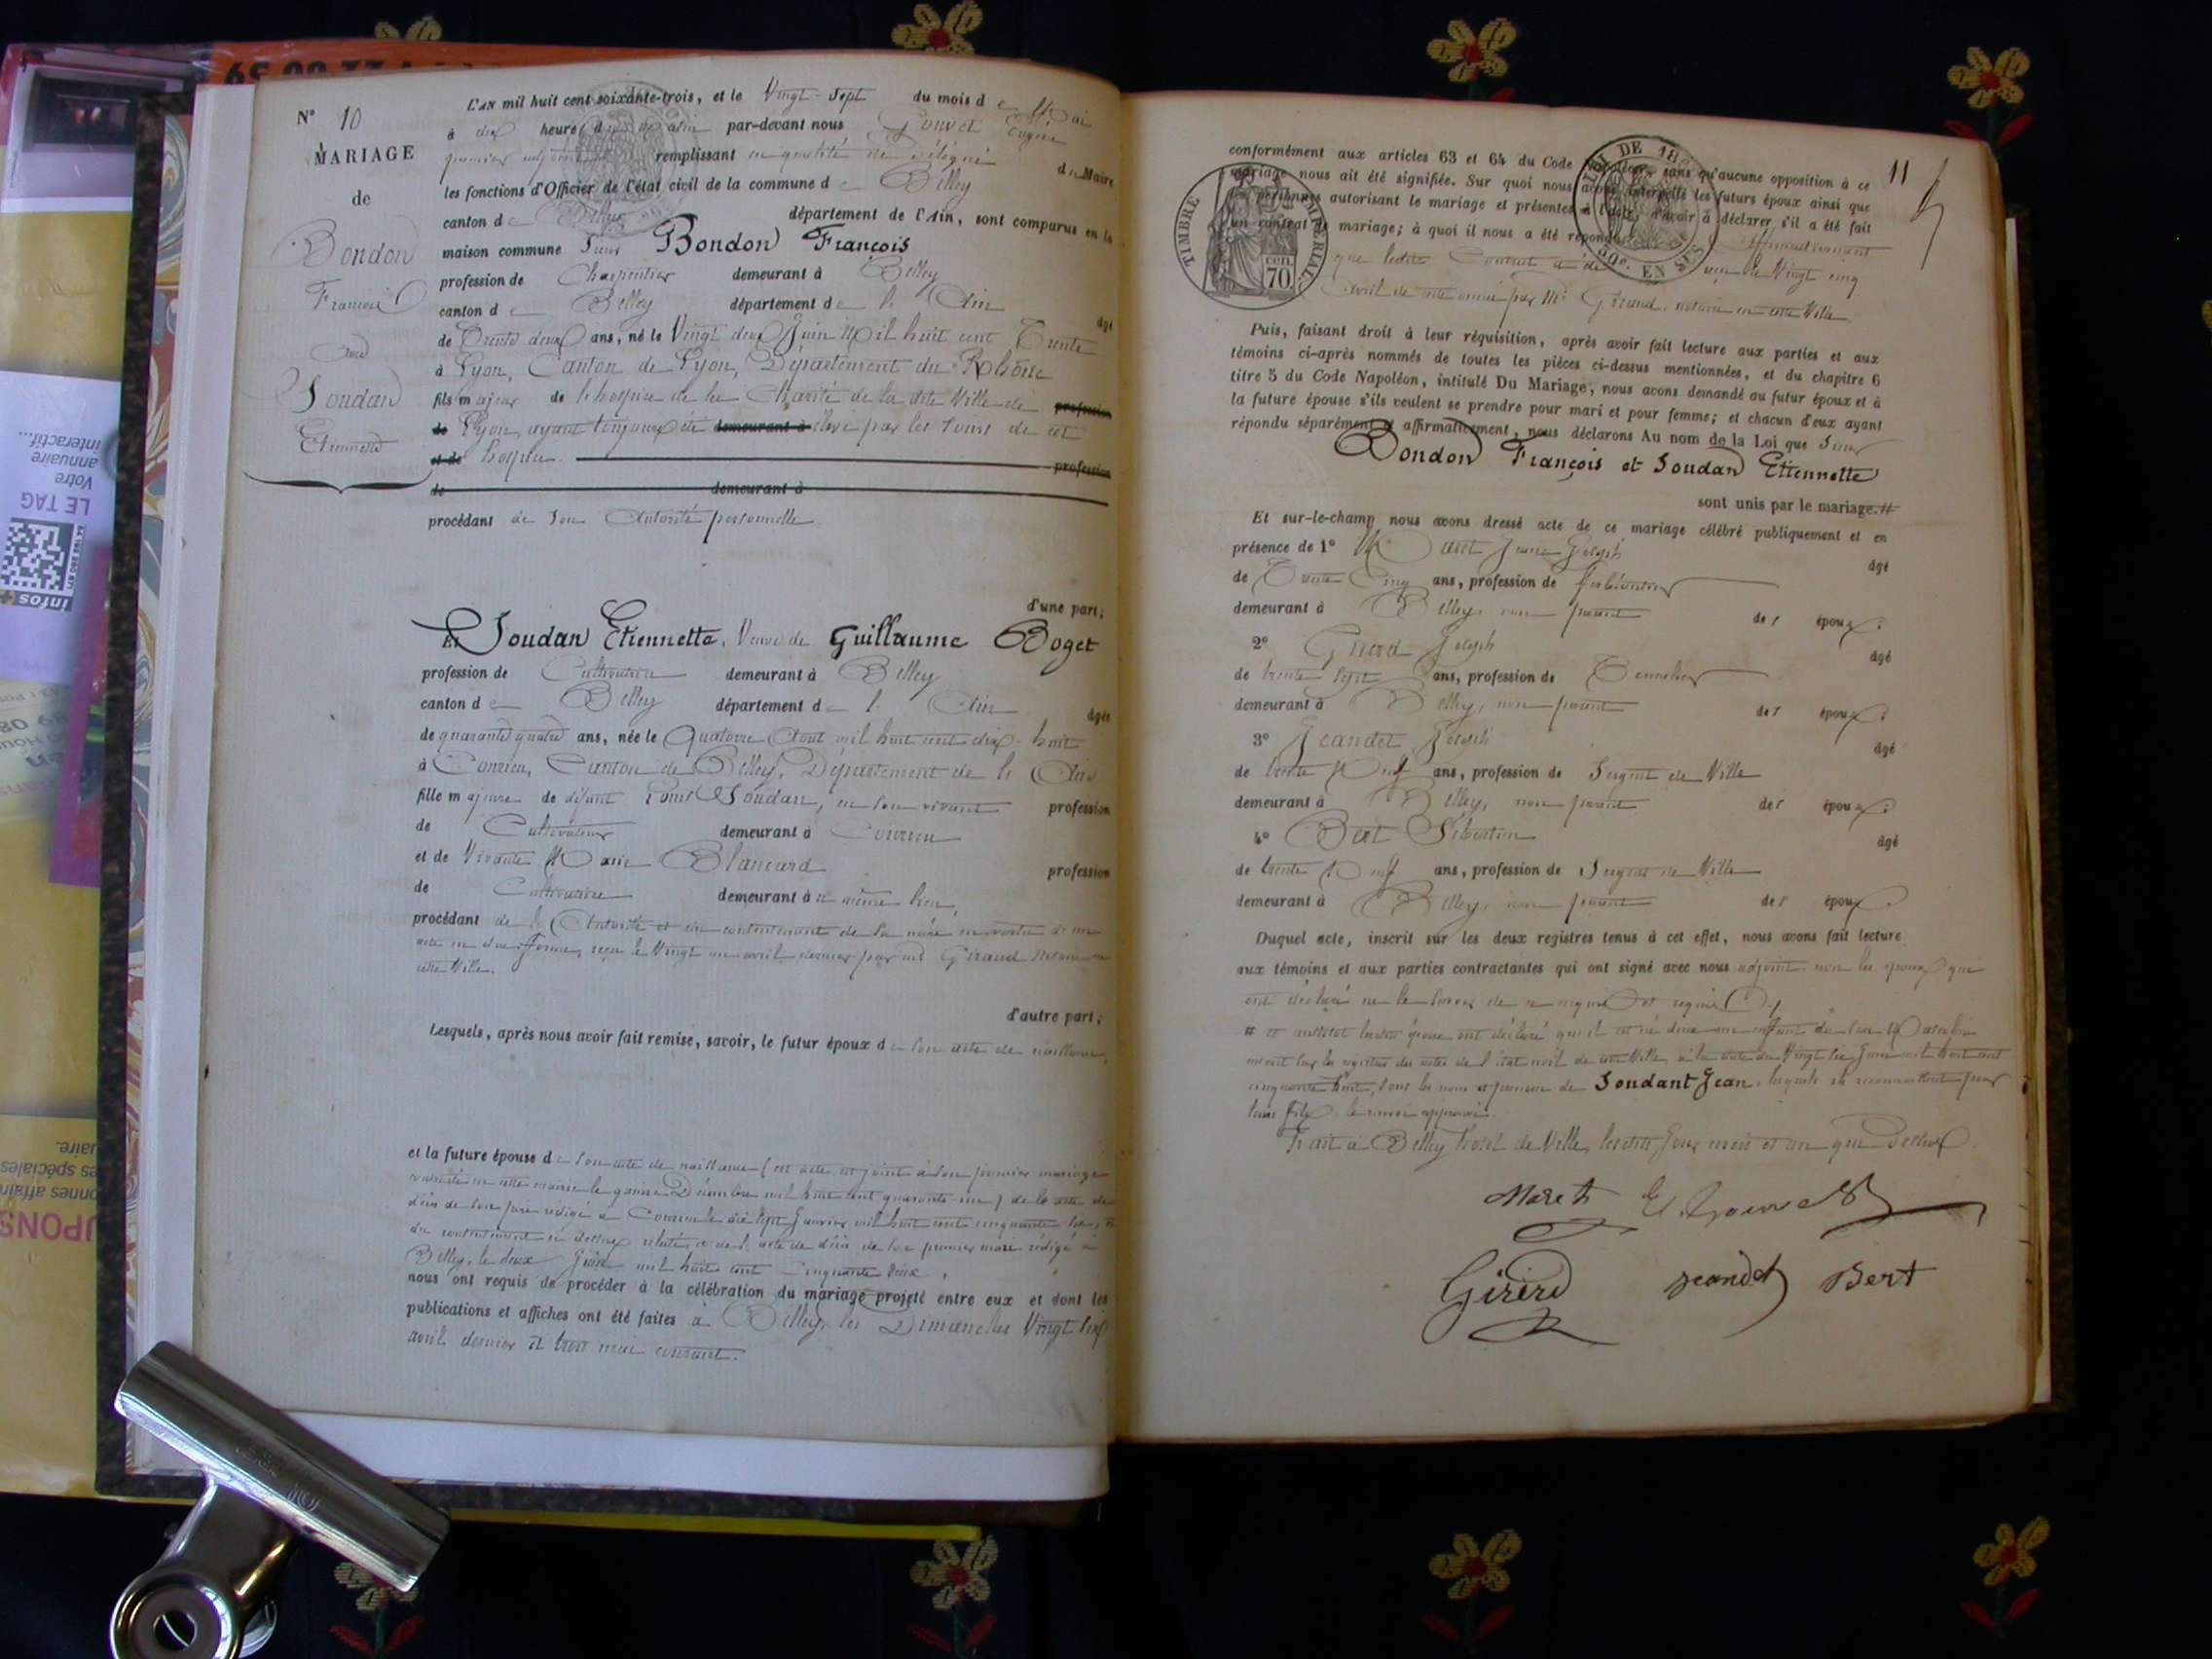 N° 10
MARIAGE
de
Bondon
François
avec
Soudan
Etiennette
L'AN mil huit cent soixante-trois, et le Vingt-Sept du mois de Mai
à dix heures du matin par-devant nous Gouvet Eugène
premier adjoint remplissant en qualité de Délégué du Maire
les fonctions d'Officier de l'état civil de la commune de Belley
canton de Belley département de l'Ain, sont comparus en la
maison commune Sieur Bondon François
profession de Charpentier demeurant à Belley
canton de Belley département de l'Ain âgé
de Trente deux ans, né le Vingt deux Juin Mil huit cent Trente
à Lyon, Canton de Lyon, Département du Rhône
fils majeur de l'hospice de la Charité de la dite Ville de profession
de Lyon, ayant toujours été demeurant à élevé par les soins de cet
et de hospice. profession
de demeurant à
procédant de Son Autorité personnelle.
d'une part;
Et Soudan Etiennette, Veuve de Guillaume Boget
profession de Cultivatrice demeurant à Belley
canton de Belley département de l'Ain âgée
de quarante quatre ans, née le Quatorze Août mil huit cent dix-huit
à Conzieu, Canton de Belley, Département de l'Ain
fille majeure de défunt Louis Soudan, en son vivant profession
de Cultivateur demeurant à Conzieu
et de Vivante Marie Blancard profession
de Cultivatrice demeurant à même lieu,
procédant de l'Autorité et du consentement de sa mère en vertu d'un
acte en due forme, reçu le Vingt un avril dernier par md Giraud Notaire en
cette Ville.
d'autre part;
Lesquels, après nous avoir fait remise, savoir, le futur époux de son acte de naissance,
et la future épouse de son acte de naissance (cet acte est joint à son premier mariage
contracté en cette mairie le quinze Décembre mil huit cent quarante-un) de l'acte de
décès de son père rédigé à Conzieu le dix sept Janvier mil huit cent cinquante six,
du consentement ci dessus relaté, et de l'acte de décès de son premier mari rédigé à
Belley, le deux Juin mil huit cent cinquante deux,
nous ont requis de procéder à la célébration du mariage projeté entre eux et dont les
publications et affiches ont été faites à Belley, les Dimanches Vingt six
avril dernier et trois mai courant.
11
TIMBRE IMPERIAL
cen 70
LOI DE 18
50c. EN SUS
conformément aux articles 63 et 64 du Code Napoléon, sans qu'aucune opposition à ce
mariage nous ait été signifiée. Sur quoi nous avons interpellé les futurs époux ainsi que
les personnes autorisant le mariage et présentes à l'acte, d'avoir à déclarer s'il a été fait
un contrat de mariage; à quoi il nous a été répondu affirmativement
que ledit Contrat a été reçu le Vingt cinq
avril de cette année par Me Giraud, notaire en cette Ville.
Puis, faisant droit à leur réquisition, après avoir fait lecture aux parties et aux
témoins ci-après nommés de toutes les pièces ci-dessus mentionnées, et du chapitre 6
titre 5 du Code Napoléon, intitulé Du Mariage, nous avons demandé au futur époux et à
la future épouse s'ils veulent se prendre pour mari et pour femme; et chacun d'eux ayant
répondu séparément et affirmativement, nous déclarons Au nom de la Loi que Sieur
Bondon François et Soudan Etiennette
sont unis par le mariage.#
Et sur-le-champ nous avons dressé acte de ce mariage célébré publiquement et en
présence de 1° Maret Jean Joseph âgé
de Trente Cinq ans, profession de ferblantier
demeurant à Belley, non parent des époux;
2° Girerd Joseph âgé
de trente Sept ans, profession de Tonnelier
demeurant à Belley, non parent des époux;
3° Jeandet Joseph âgé
de trente Neuf ans, profession de Sergent de Ville
demeurant à Belley, non parent des époux;
4° Bert Sébastien âgé
de trente Neuf ans, profession de Sergent de Ville
demeurant à Belley, non parent des époux.
Duquel acte, inscrit sur les deux registres tenus à cet effet, nous avons fait lecture
aux témoins et aux parties contractantes qui ont signé avec nous adjoint, non les époux qui
ont déclaré ne le savoir de ce enquis et requis.
# et aussitôt lesdits époux ont déclaré qu'il est né d'eux un enfant du sexe Masculin
inscrit sur les registres des actes de l'état civil de cette Ville à la date du Vingt six Juin mil huit cent
cinquante huit, sous les nom et prénom de Soudant Jean, lequel ils reconnaissent pour
leur fils. le renvoi approuvé.
Fait à Belley hôtel de Ville, lesdits Jour mois et an que dessus.
Maret E. Gouvet
Girerd Jeandet Bert
interactif...
annuaire
Votre
LE TAG
infos